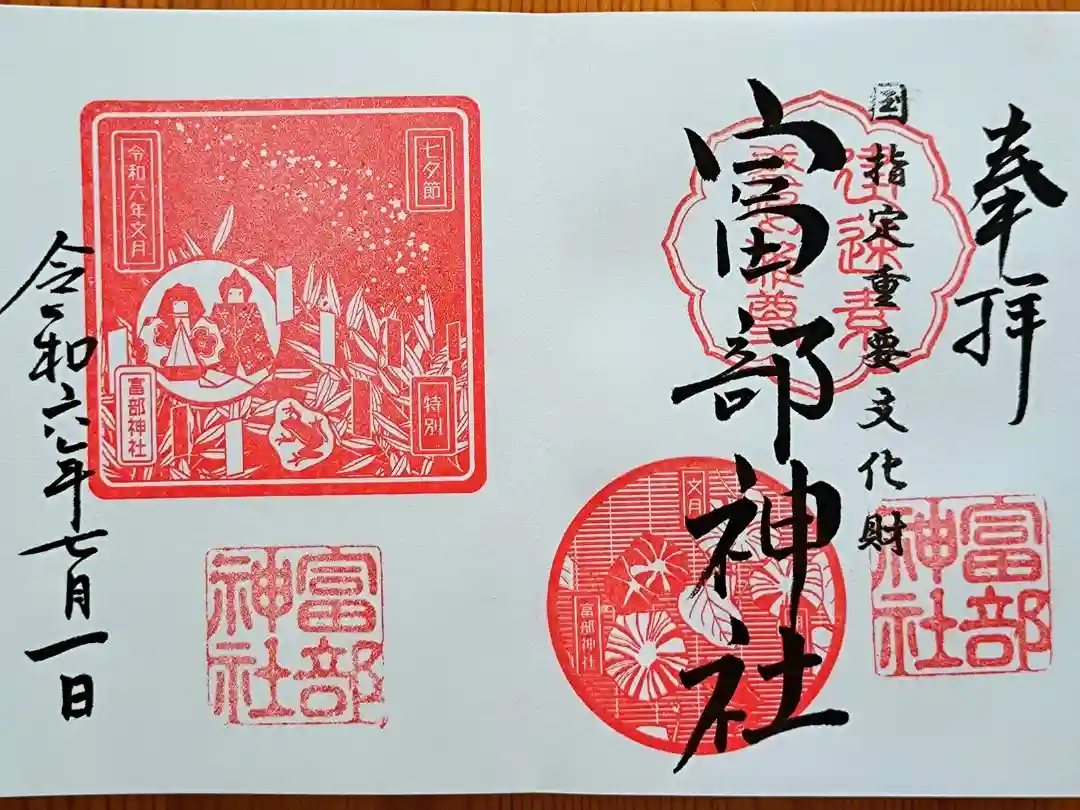 奉拝
国指定重要文化財
富部神社
文月
富部神社
富部神社
七夕節
特別
令和六年文月
富部神社
富部神社
令和六年七月一日